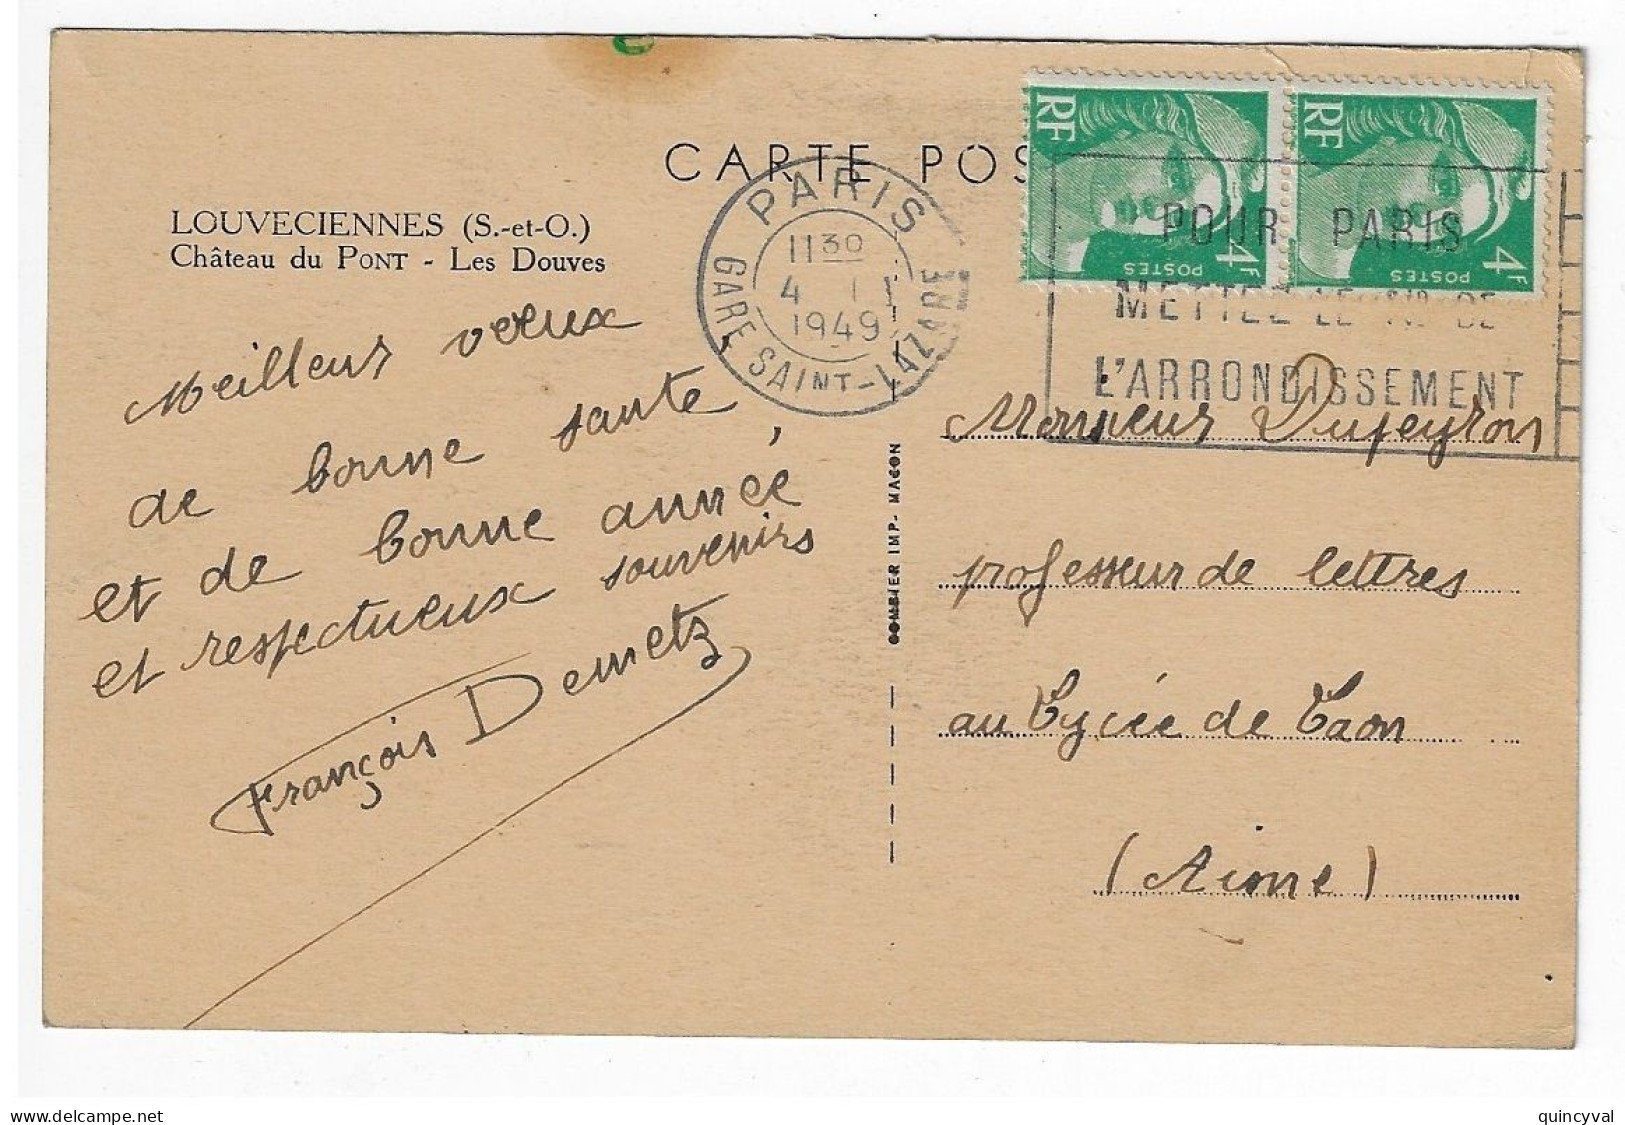 CARTE POS
RF
4F
POSTES
RF
4F
POSTES
PARIS
GARE SAINT-LAZARE
11 30
4 - 1
1949
POUR PARIS
METTEZ LE N° DE
L'ARRONDISSEMENT
LOUVECIENNES (S.-et-O.)
Château du PONT - Les Douves
Meilleurs voeux
de bonne sante,
et de bonne année
et respectueux souvenirs
François Demetz
COMBIER IMP- MACON
Monsieur Dupeyron
professeur de lettres
au Lycée de Laon
(Aisne)
www.delcampe.net
quincyval